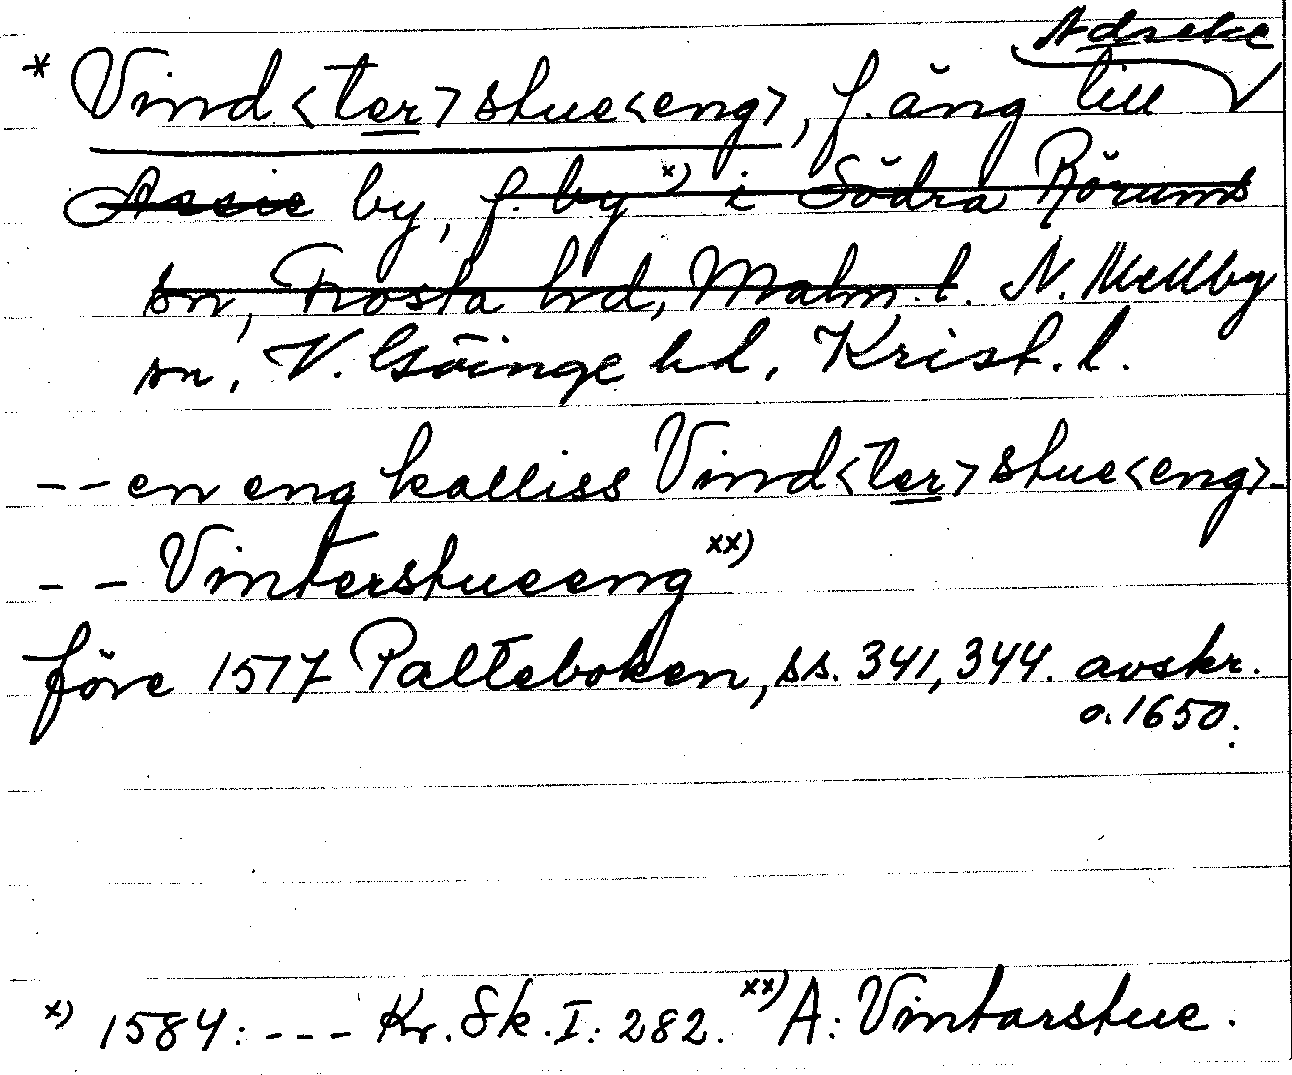 Adseke
* Vind<ter>stue<eng>, f. äng till
Assie by, f. by x) i Södra Rörums
sn, Frosta hd, Malm. l. N. Mellby
sn, V. Göinge hd, Krist. l.
-- en eng kalliss Vind<ter>stue<eng>-
-- Vinterstueeng xx)
före 1517 Palteboken, ss. 341, 344. avskr.
o. 1650.
x) 1584: --- Kr. Sk. I: 282. xx) A: Vintarstue.